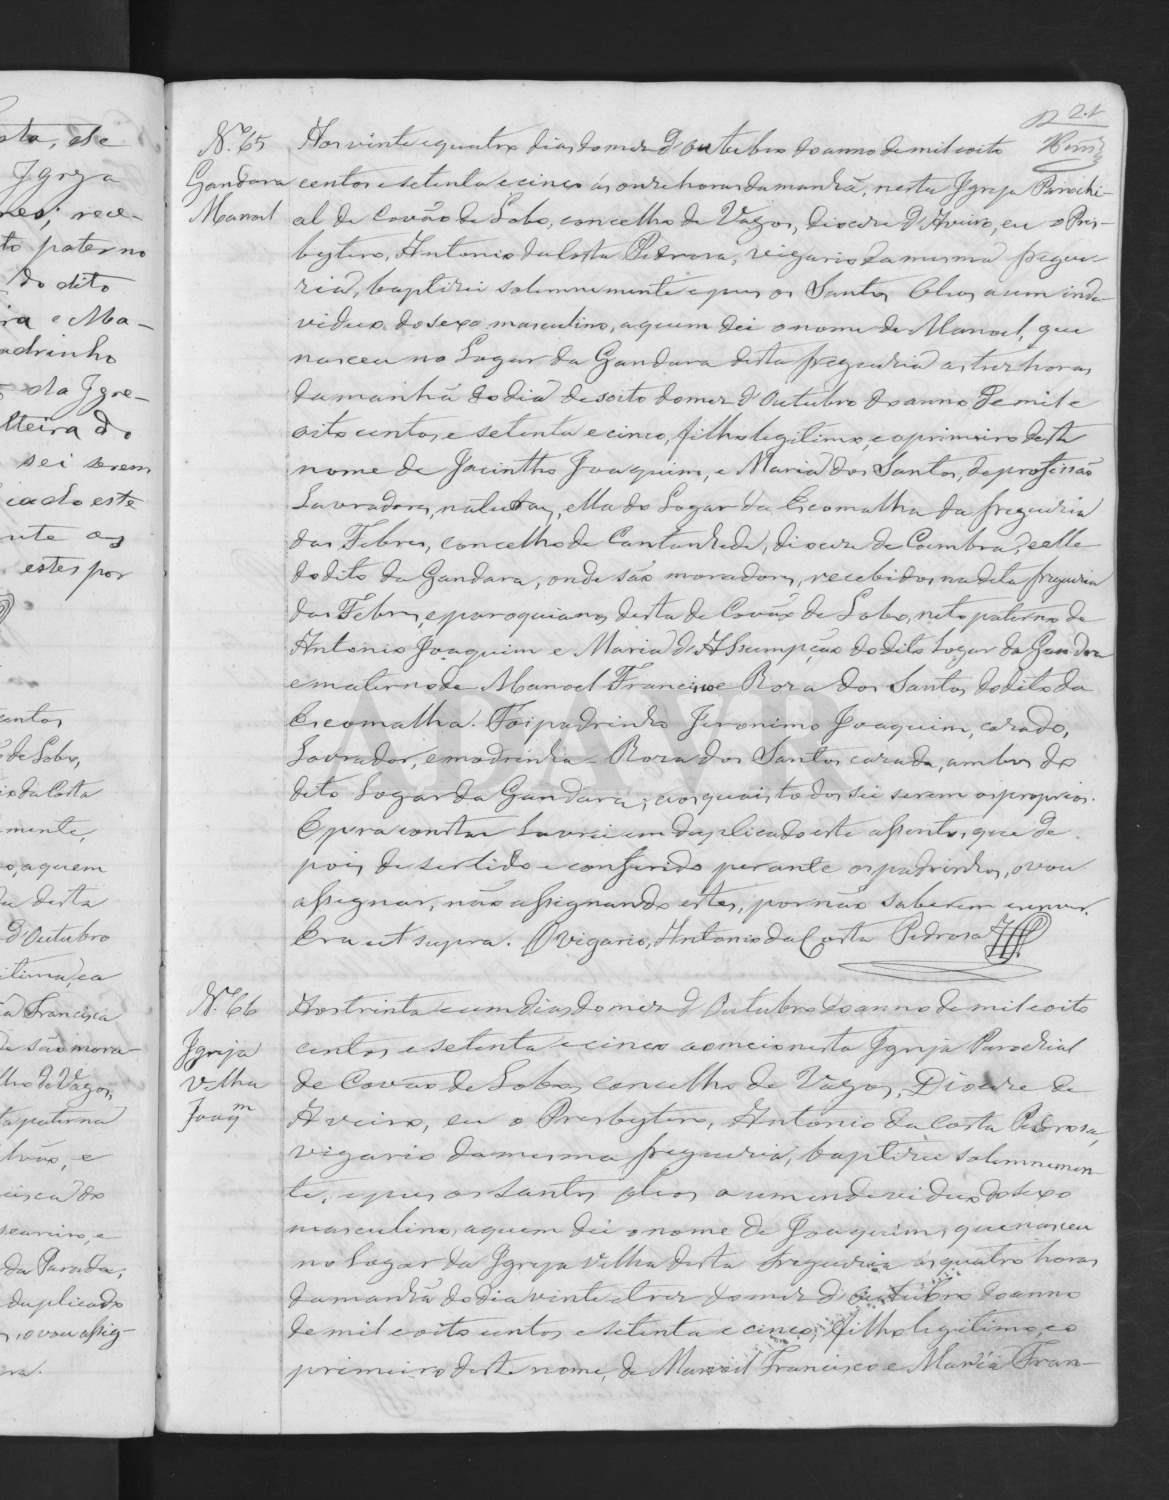 sta, de
Igreja
nes; rece-
to paterno
do dito
ira e Ma-
adrinho
da Igre-
lteira do
sei serem
icado este
nte as
estes por
entos
de Lobo,
io da Costa
mente,
o, a quem
desta
d'Outubro
itima, e a
Francisca
de são mora-
lho de Vagos,
ta paterna
e
cisca do
e
da Parada,
duplicado
o vou assig-
ra.
21
N.º 65
Gandara
Manoel
Aos vinte e quatro dias do mez d'Outubro do anno de mil e oito
centos e setenta e cinco ás onze horas da manhã, nesta Igreja Parochi-
al de Covão de Lobo, concelho de Vagos, Diocese d'Aveiro, eu o Pres-
bytero, Antonio da Costa Pedrosa, vigario da mesma fregue-
zia, baptizei solemnemente e puz os Santos Oleos a um inde-
viduo do sexo masculino, a quem dei o nome de Manoel, que
nasceu no Logar da Gandara desta freguezia as trez horas
da manhã do dia desoito do mez d'Outubro do anno de mil e
oito centos e setenta e cinco, filho legitimo, e o primeiro deste
nome de Jacintho Joaquim, e Maria dos Santos, de profissão
Lavradores, naturaes, ella do Logar da Escomalha da freguezia
das Febres, concelho de Cantanhede, diocese de Coimbra, e elle
do dito da Gandara, onde são moradores, recebidos na dita freguezia
das Febres, e paroquianos desta de Covão de Lobo, neto paterno de
Antonio Joaquim e Maria d'Assumpção do dito Logar da Gandara
e materno de Manoel Francisco e Roza dos Santos do dito da
Escomalha. Foi padrinho Jeronimo Joaquim, cazado,
Lavrador, e madrinha Roza dos Santos cazada, ambos do
dito Logar da Gandara, os quais todos sei serem os proprios.
E para constar Lavrei em duplicado este assento, que de
pois de ser lido e conferido perante os padrinhos, o vou
assignar, não assignando estes, por não saberem escrever.
Era ut supra. O Vigario, Antonio da Costa Pedrosa
N.º 66
Igreja
Velha
Joaqm
Aos trinta e um dias do mez d'Outubro do anno de mil e oito
centos e setenta e cinco ao meio nesta Igreja Parochial
de Covão de Lobo, concelho de Vagos, Diocese de
Aveiro, eu o Presbytero, Antonio da Costa Pedrosa,
vigario da mesma freguezia, baptizei solemnemen-
te, e puz os santos oleos a um endeviduo do sexo
masculino, a quem dei o nome de Joaquim, que nasceu
no Logar da Igreja Velha desta freguezia ás quatro horas
da manhã do dia vinte e trez do mez d'Outubro do anno
de mil e oito centos e setenta e cinco, filho legitimo, e o
primeiro deste nome, de Manoel Francisco e Maria Fran-
ADAVR